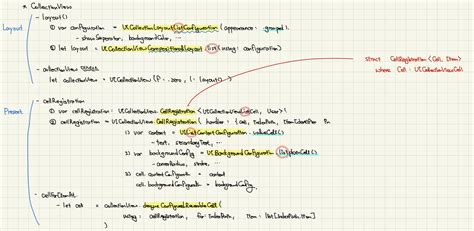 * CollectionView
Layout
- layout()
① var configuration = UICollectionLayoutListConfiguration (appearance: .grouped)
- showSeparator, backgroundColor, ...
② let layout = UICollectionViewCompositionalLayout.list(using: configuration)
- collectionView
let collectionView = UICollectionView (f: .zero, l: layout())
struct CellRegistration<Cell, Item>
where Cell : UICollectionViewCell
Present
- cellRegistration
① var cellRegistration: UICollectionView.CellRegistration<UICollectionViewListCell, User>!
② cellRegistration = UICollectionView.CellRegistration( handler: { cell, indexPath, itemIdentifier in
1) var content = UIListContentConfiguration.valueCell()
- text, secondaryText, ...
2) var backgroundConfig = UIBackgroundConfiguration.listPlainCell()
- cornerRadius, stroke, ...
3) cell.contentConfiguration = content
cell.backgroundConfiguration = backgroundConfig
- cellForItemAt
- let cell = collectionView.dequeueConfiguredReusableCell(
using: cellRegistration, for: indexPath, item: list[indexPath.item]
)